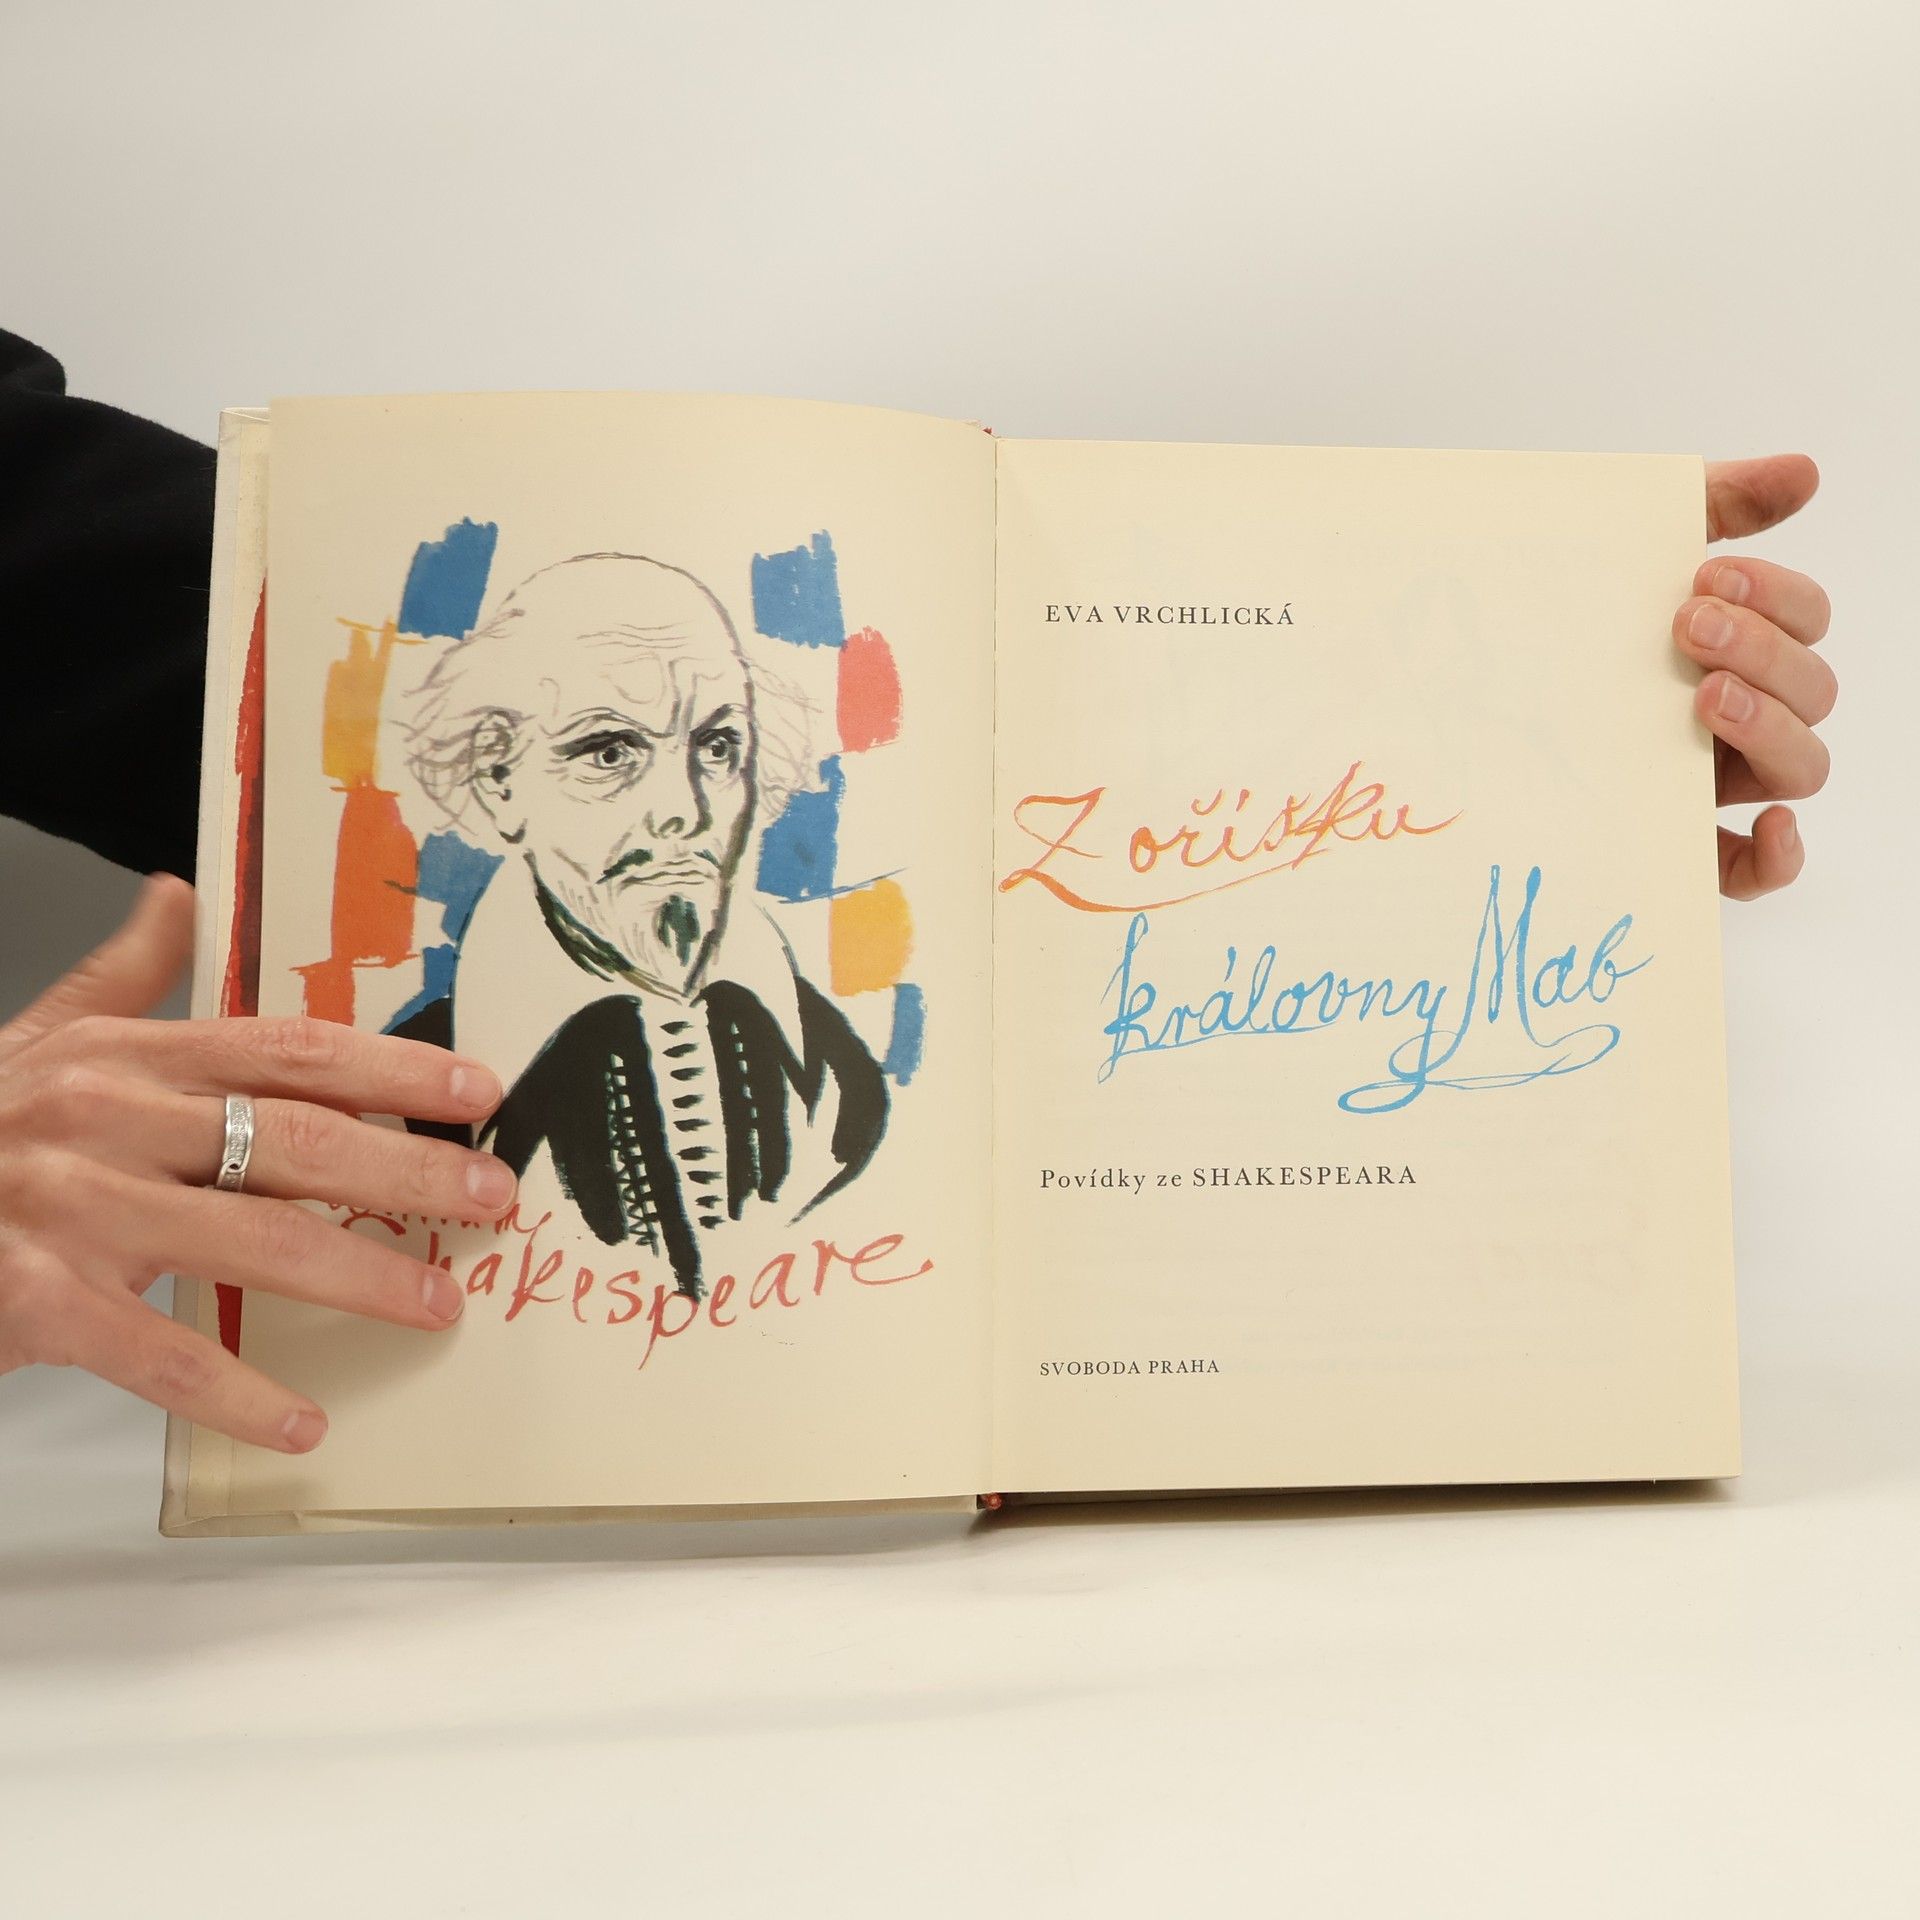 Shakespeare
EVA VRCHLICKÁ
Z oříšku
královny Mab
Povídky ze SHAKESPEARA
SVOBODA PRAHA